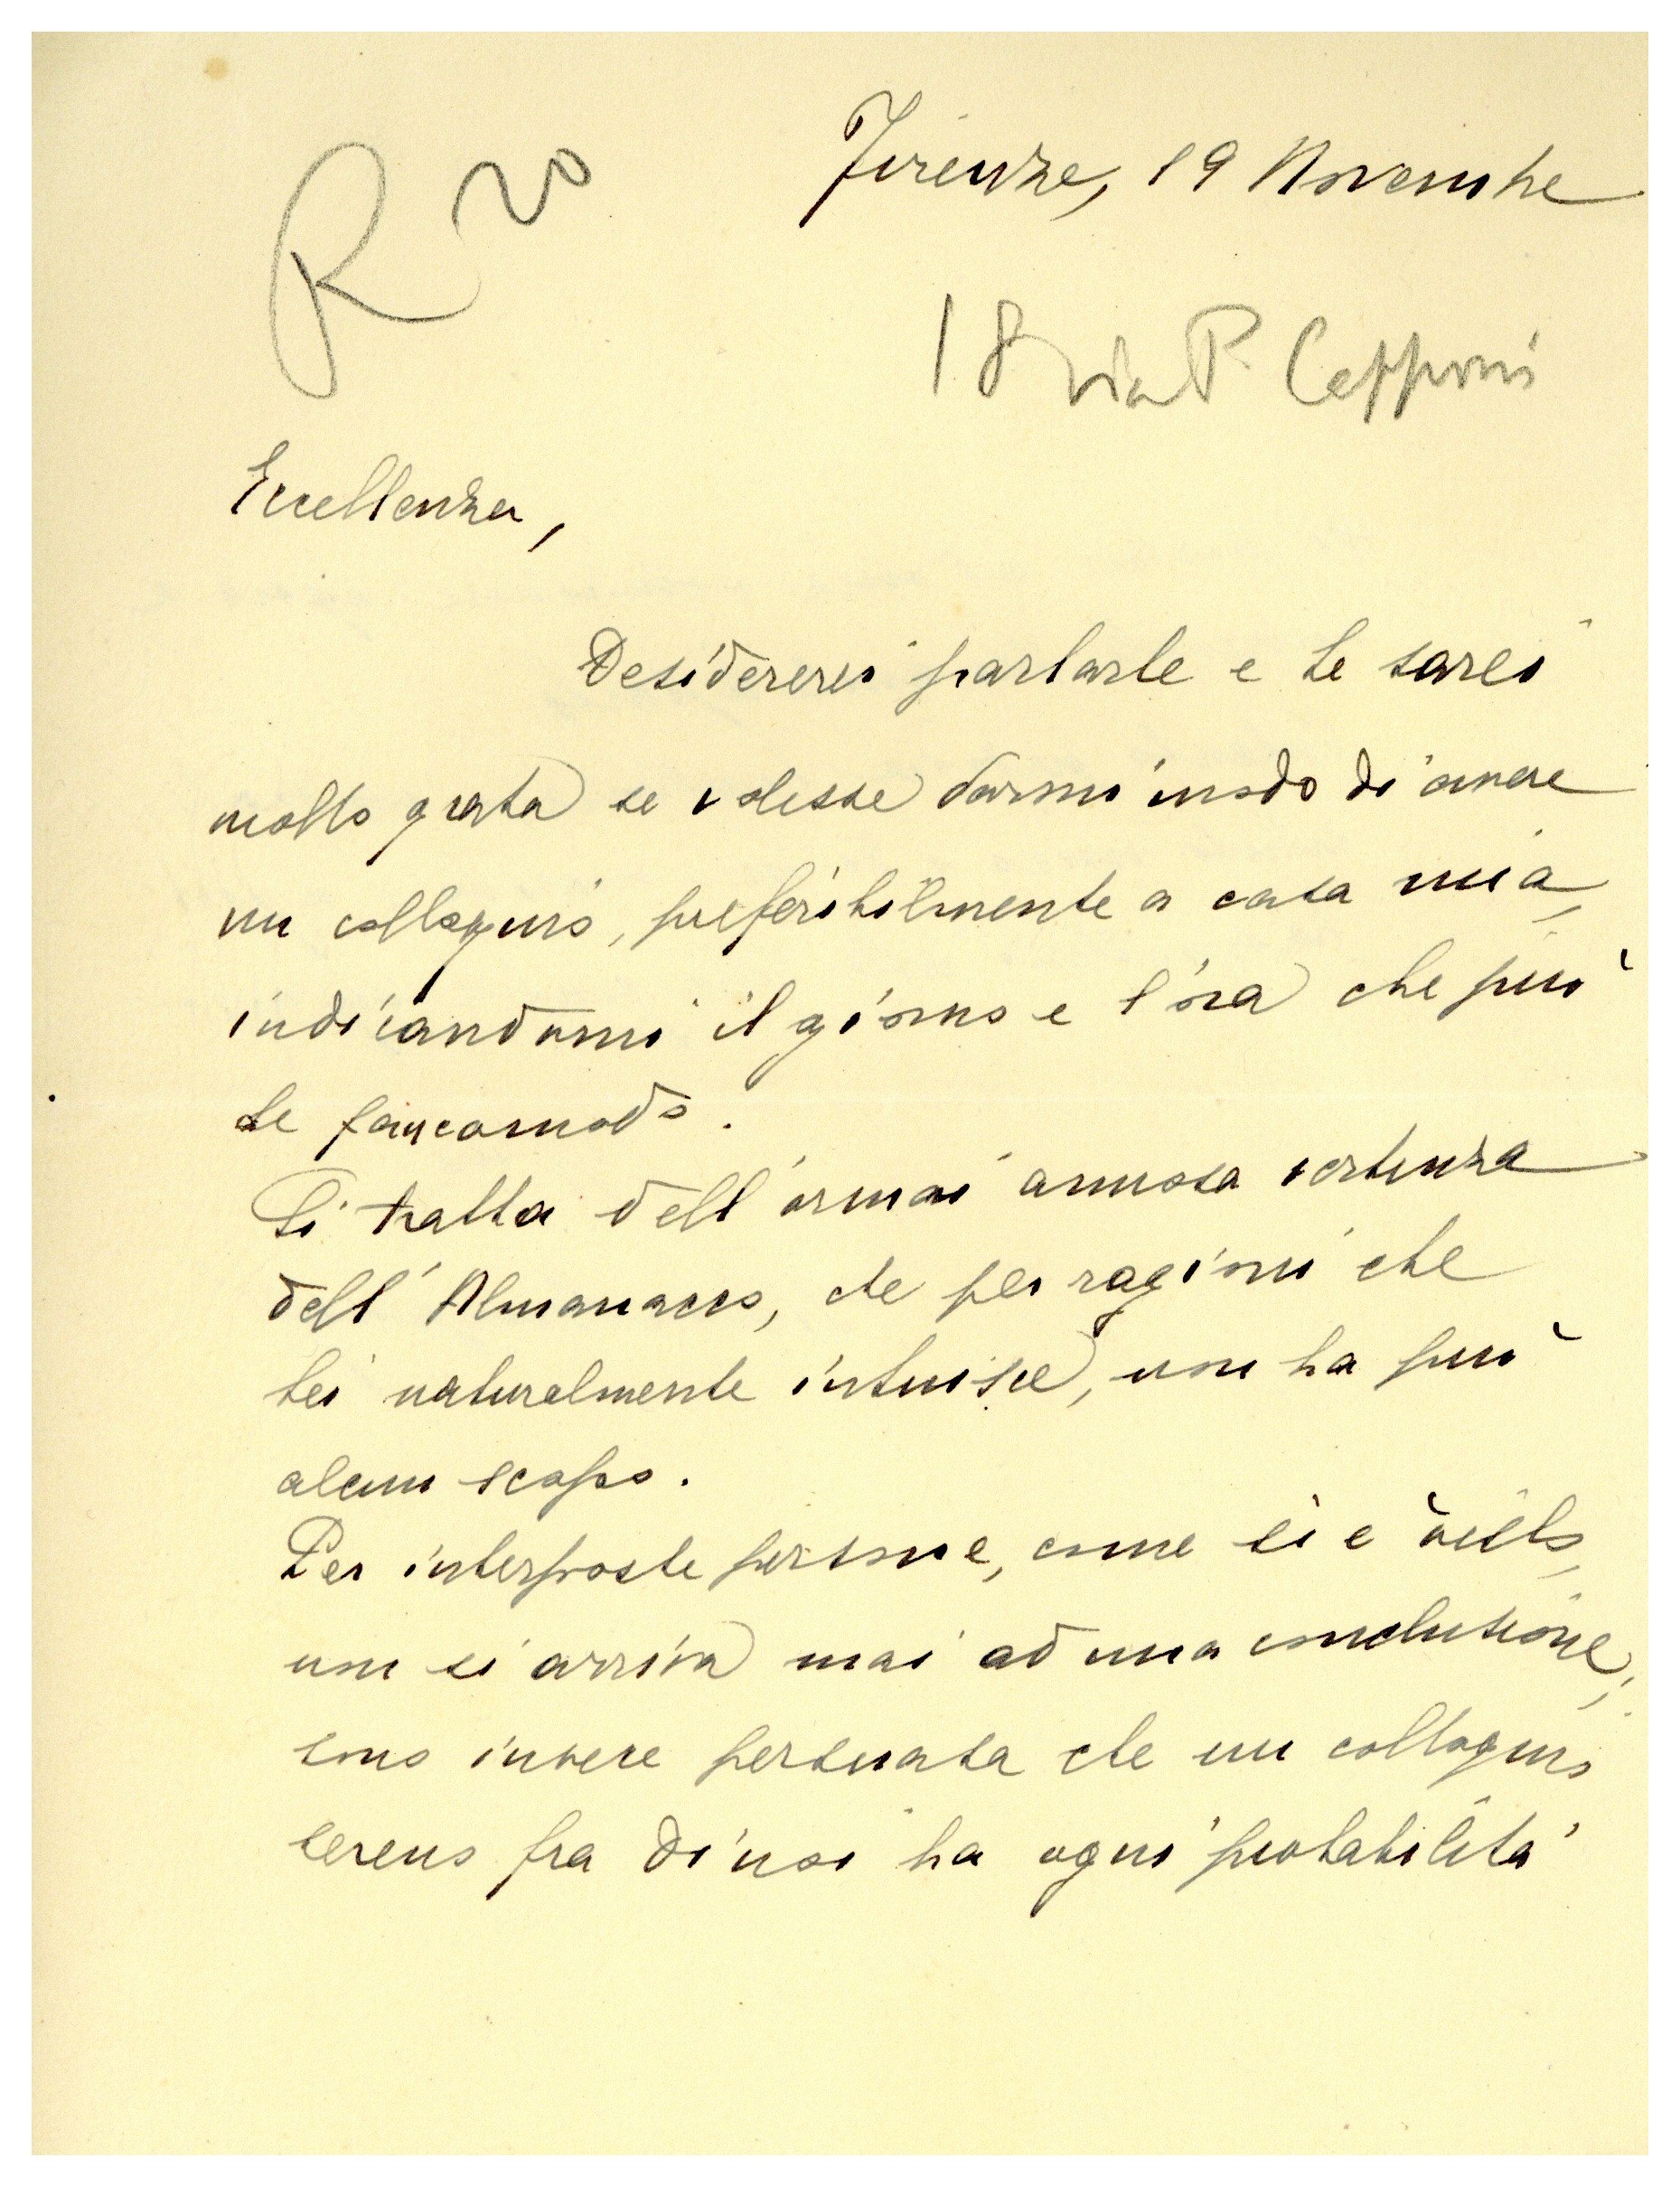 Firenze, 19 Novembre
R 20
18 via P. Capponi
Eccellenza,
Desidererei parlarle e Le sarei
molto grata se volesse darmi modo di avere
un colloquio, preferibilmente a casa mia,
indicandomi il giorno e l'ora che più
Le fan comodo.
Si tratta dell'ormai annosa vertenza
dell'Almanacco, che per ragioni che
Lei naturalmente intuisce, non ha più
alcun scopo.
Per interposte persone, come si è visto,
non si arriva mai ad una conclusione;
sono invece persuasa che un colloquio
sereno fra di noi ha ogni probabilità